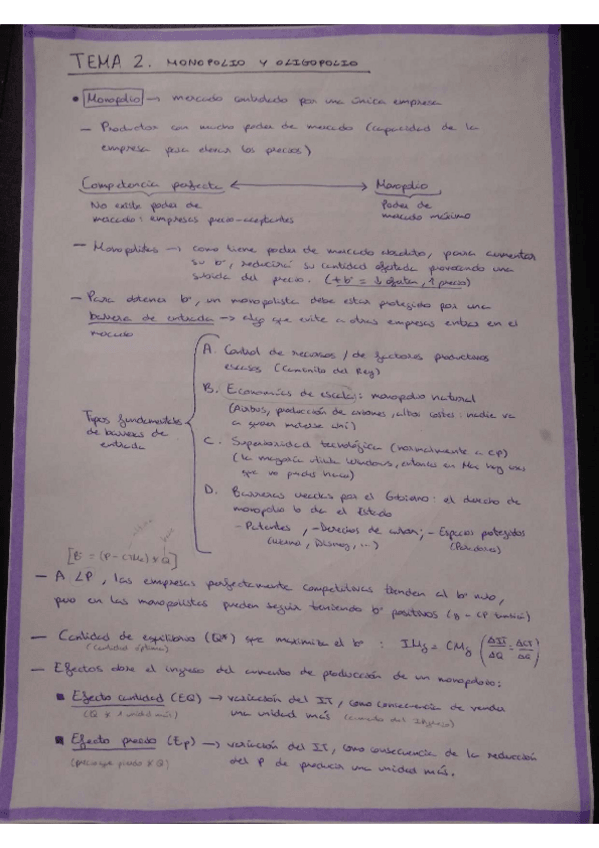 TEMA 2. MONOPOLIO Y OLIGOPOLIO
• Monopolio → mercado controlado por una única empresa
- Productor con mucho poder de mercado (capacidad de la
empresa para elevar los precios)
Competencia perfecta ↔ Monopolio
No existe poder de
mercado: empresas precio-aceptantes
Poder de
mercado máximo
- Monopolistas → como tiene poder de mercado absoluto, para aumentar
su bº, reducirá su cantidad ofertada provocando una
subida del precio. (+bº = ↓ofertan, ↑precio)
- Para obtener bº, un monopolista debe estar protegido por una
barrera de entrada → algo que evite a otras empresas entrar en el
mercado
Tipos fundamentales
de barreras de
entrada
A. Control de recursos / de factores productivos
escasos (Caminito del Rey)
B. Economías de escala: monopolio natural
(Airbus, producción de aviones, altos costes: nadie va
a querer meterse ahí)
C. Superioridad tecnológica (normalmente a CP)
(la mayoría utiliza Windows, en Mac hay
que no puedes hacer)
D. Barreras creadas por el Gobierno: el derecho de
monopolio lo da el Estado
- Patentes, - Derechos de autor; - Espacios protegidos
Disney, ...)
[Bº = (P - CTMe) x Q]
- A LP, las empresas perfectamente competitivas tienden al bº nulo,
pero en los monopolistas pueden seguir teniendo bº positivos
- Cantidad de equilibrio (Q*) que maximiza el bº: IMg = CMg (ΔIT/ΔQ = ΔCT/ΔQ)
(cantidad óptima)
- Efectos sobre el ingreso del aumento de producción de un monopolio:
▪ Efecto cantidad (EQ) → variación del IT, como consecuencia de vender
una unidad más (aumento del Ingreso)
▪ Efecto precio (Ep) → variación del IT, como consecuencia de la reducción
del P de producir una unidad más.